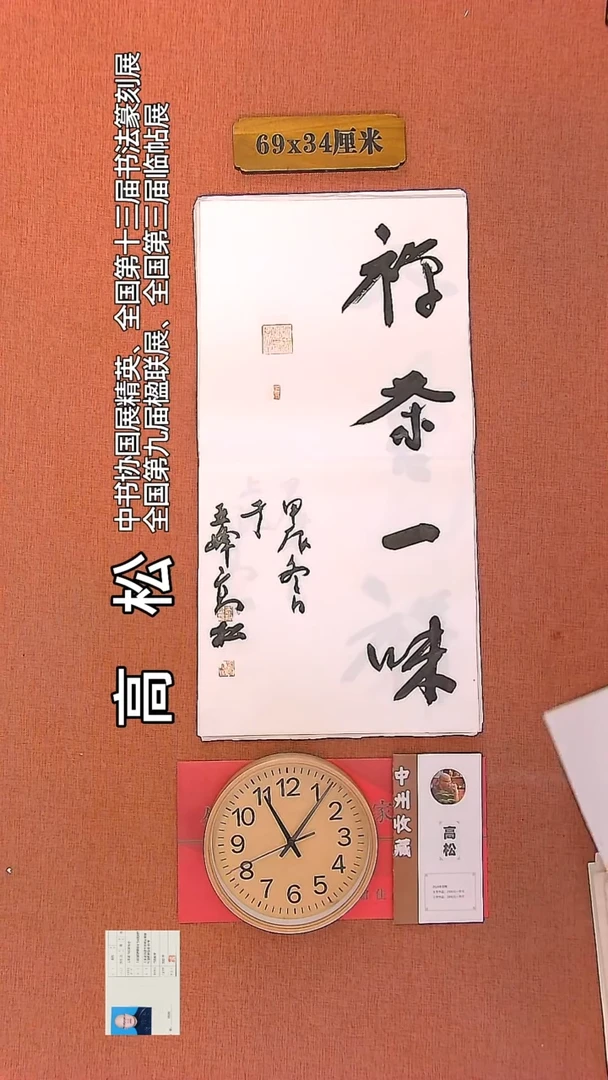 69x34厘米
禅茶一味
甲辰冬日
于
玉峰高松
高 松
中书协国展精英、全国第十三届书法篆刻展
全国第九届楹联展、全国第三届临帖展
12
1
2
3
4
5
6
7
8
9
10
11
家
中州收藏
高松